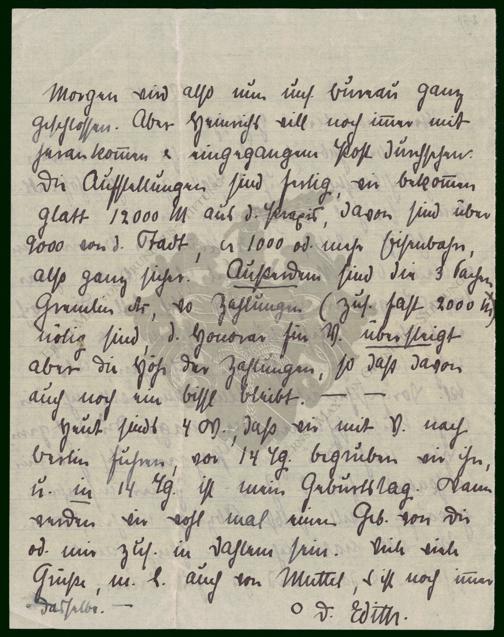 Morgen wird also nun uns. Bureau ganz
geschlossen. Aber Heinrichs will noch immer mit
herankommen & eingegangene Post durchsehen.
Die Aufstellungen sind fertig, wir bekommen
glatt 12000 M aus d. Praxis, davon sind über
9000 von d. Stadt, 1000 od. mehr Eisenbahn,
also ganz sicher. Außerdem sind die 3 Sachen,
wo Zahlungen (zus. fast 2000 M)
nötig sind, d. Honorar für V. übersteigt
aber die Höhe der Zahlungen, so daß davon
auch noch ein bissl bleibt. —
Heut sinds 4 W., daß wir mit V. nach
Berlin fuhren, vor 14 Tg. begruben wir ihn,
u. in 14 Tg. ist mein Geburtstag. Wann
werden wir wohl mal einen Geb. von dir
od. mir zus. in Dahlem sein. Viele viele
Grüße, m. L. auch von Muttel, 's ist noch immer
dasselbe. —
D. Edith.